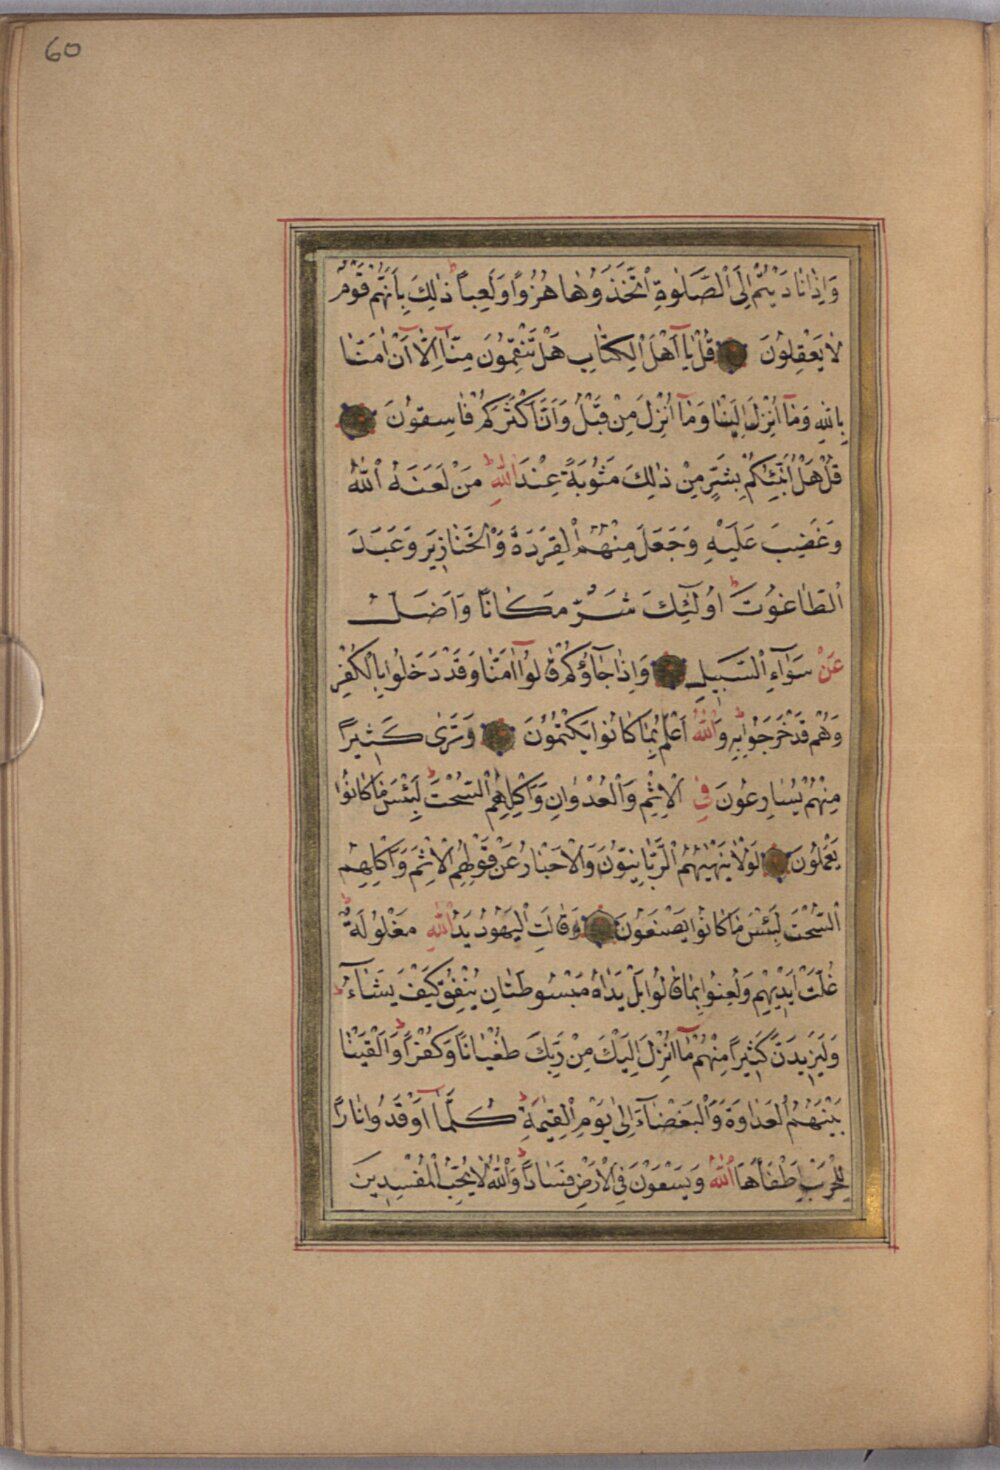 60
وَاِذَا نَادَيْتُمْ اِلَى الْصَّلٰوةِ اتَّخَذُوهَا هُزُوًا وَلَعِبًا ذٰلِكَ بِاَنَّهُمْ قَوْمٌ
لَا يَعْقِلُونَ قُلْ يَآ اَهْلَ الْكِتَابِ هَلْ تَنْقِمُونَ مِنَّآ اِلَّآ اَنْ اٰمَنَّا
بِاللّٰهِ وَمَآ اُنْزِلَ اِلَيْنَا وَمَآ اُنْزِلَ مِنْ قَبْلُ وَاَنَّ اَكْثَرَكُمْ فَاسِقُونَ
قُلْ هَلْ اُنَبِّئُكُمْ بِشَرٍّ مِنْ ذٰلِكَ مَثُوبَةً عِنْدَ اللّٰهِ مَنْ لَعَنَهُ اللّٰهُ
وَغَضِبَ عَلَيْهِ وَجَعَلَ مِنْهُمُ الْقِرَدَةَ وَالْخَنَازِيرَ وَعَبَدَ
الطَّاغُوتَ اُولٰٓئِكَ شَرٌّ مَكَانًا وَاَضَلُّ
عَنْ سَوَآءِ السَّبِيلِ وَاِذَا جَآؤُكُمْ قَالُوآ اٰمَنَّا وَقَدْ دَخَلُوا بِالْكُفْرِ
وَهُمْ قَدْ خَرَجُوا بِهِ وَاللّٰهُ اَعْلَمُ بِمَا كَانُوا يَكْتُمُونَ وَتَرٰى كَثِيرًا
مِنْهُمْ يُسَارِعُونَ فِى الْاِثْمِ وَالْعُدْوَانِ وَاَكْلِهِمُ السُّحْتَ لَبِئْسَ مَا كَانُوا
يَعْمَلُونَ لَوْلَا يَنْهٰيهُمُ الرَّبَّانِيُّونَ وَالْاَحْبَارُ عَنْ قَوْلِهِمُ الْاِثْمَ وَاَكْلِهِمُ
السُّحْتَ لَبِئْسَ مَا كَانُوا يَصْنَعُونَ وَقَالَتِ الْيَهُودُ يَدُ اللّٰهِ مَغْلُولَةٌ
غُلَّتْ اَيْدِيهِمْ وَلُعِنُوا بِمَا قَالُوا بَلْ يَدَاهُ مَبْسُوطَتَانِ يُنْفِقُ كَيْفَ يَشَآءُ
وَلَيَزِيدَنَّ كَثِيرًا مِنْهُمْ مَآ اُنْزِلَ اِلَيْكَ مِنْ رَبِّكَ طُغْيَانًا وَكُفْرًا وَاَلْقَيْنَا
بَيْنَهُمُ الْعَدَاوَةَ وَالْبَغْضَآءَ اِلٰى يَوْمِ الْقِيٰمَةِ كُلَّمَآ اَوْقَدُوا نَارًا
لِلْحَرْبِ اَطْفَاَهَا اللّٰهُ وَيَسْعَوْنَ فِى الْاَرْضِ فَسَادًا وَاللّٰهُ لَا يُحِبُّ الْمُفْسِدِينَ